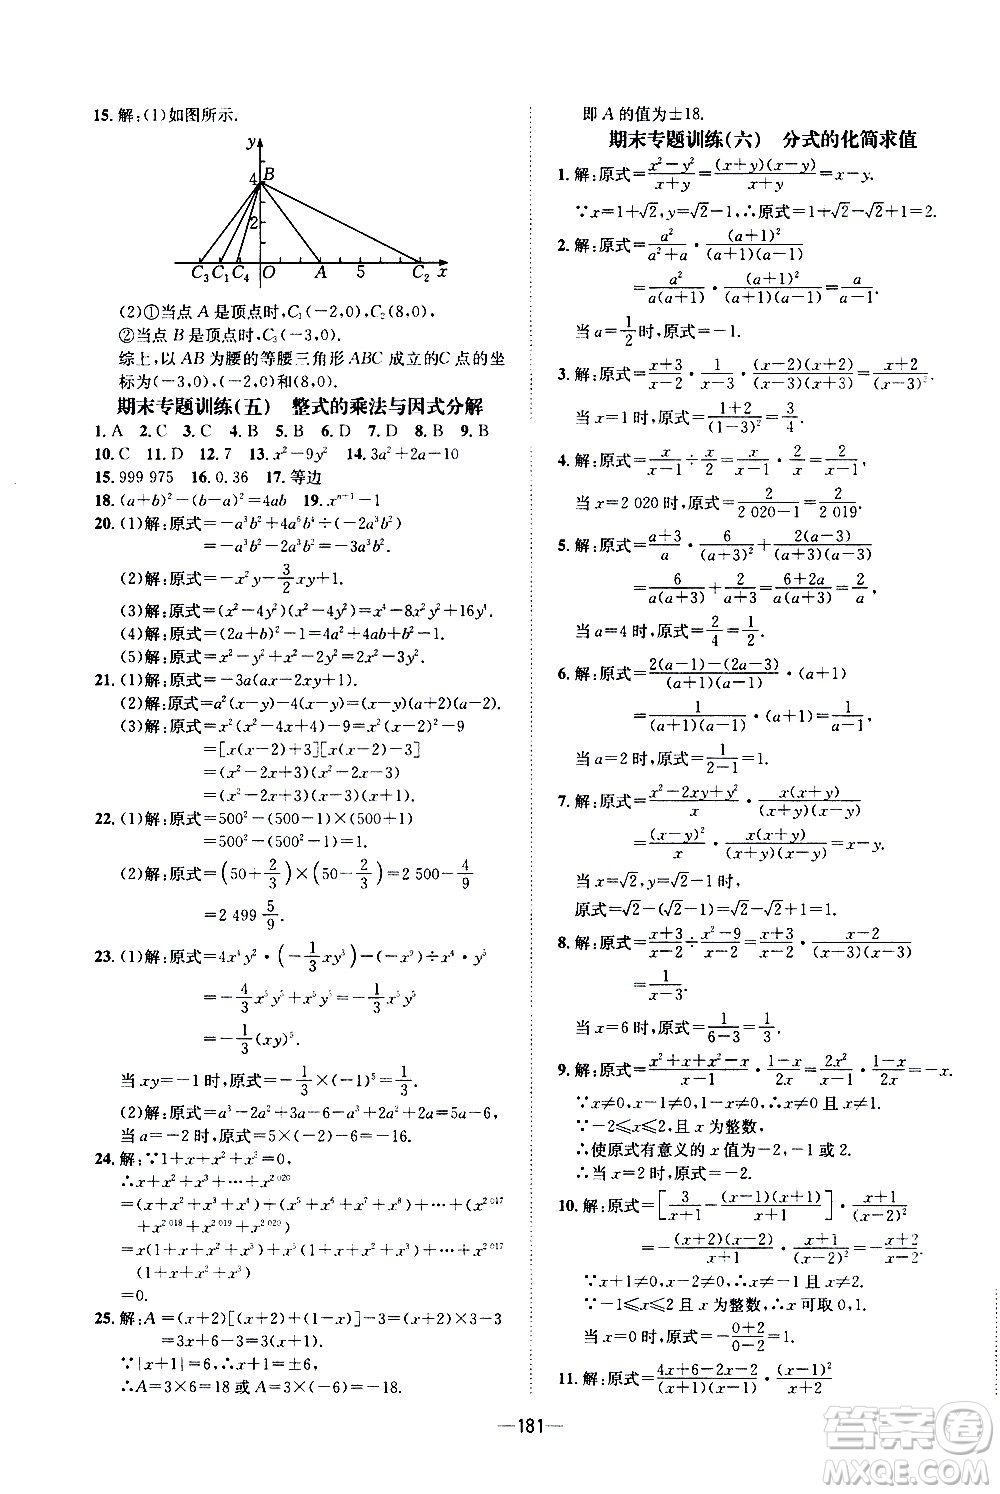 15.解:(1)如图所示.
y
4
B
2
C₃ C₁ C₄ O A 5 C₂ x
(2)①当点 A 是顶点时,C₁(-2,0),C₂(8,0),
②当点 B 是顶点时,C₃(-3,0).
综上,以 AB 为腰的等腰三角形 ABC 成立的C点的坐
标为(-3,0),(-2,0)和(8,0).
期末专题训练(五) 整式的乘法与因式分解
1. A 2. C 3. C 4. B 5. B 6. D 7. D 8. B 9. B
10. C 11. D 12. 7 13. x²-9y² 14. 3a²+2a-10
15. 999 975 16. 0. 36 17. 等边
18. (a+b)²-(b-a)²=4ab 19. xⁿ⁺¹-1
20. (1)解:原式=-a³b²+4a⁶b⁴÷(-2a³b²)
=-a³b²-2a³b²=-3a³b².
(2)解:原式=-x²y-3/2xy+1.
(3)解:原式=(x²-4y²)(x²-4y²)=x⁴-8x²y²+16y⁴.
(4)解:原式=(2a+b)²-1=4a²+4ab+b²-1.
(5)解:原式=x²-x²-4x-4=-4x-4.
21. (1)解:原式=-3a(ax-2xy+1).
(2)解:原式=a²(x-y)-4(x-y)=(x-y)(a+2)(a-2).
(3)解:原式=x²(x²-4x+4)-9=x²(x-2)²-9
=[x(x-2)+3][x(x-2)-3]
=(x²-2x+3)(x²-2x-3)
=(x²-2x+3)(x-3)(x+1).
22. (1)解:原式=500²-(500-1)×(500+1)
=500²-(500²-1)=1.
(2)解:原式=(50+2/3)×(50-2/3)=2 500-4/9
=2 499 5/9.
23. (1)解:原式=4x⁴y²·(-1/3xy³)÷4x⁴·y³
=-4/3x⁵y⁵÷4y³·y³=-1/3x⁵y⁵
=-1/3(xy)⁵.
当 xy=-1 时,原式=-1/3×(-1)⁵=1/3.
(2)解:原式=a³-2a²+3a-a³+2a²+2a-6=5a-6,
当 a=-2 时,原式=5×(-2)-6=-16.
24. 解:∵1+x+x²+x³=0,
∴x+x²+x³+x⁴+…+x²⁰²⁰
=(x+x²+x³+x⁴)+(x⁵+x⁶+x⁷+x⁸)+…+(x²⁰¹⁷
+x²⁰¹⁸+x²⁰¹⁹+x²⁰²⁰)
=x(1+x+x²+x³)+x⁵(1+x+x²+x³)+…+x²⁰¹⁷
(1+x+x²+x³)
=0.
25. 解:A=(x+2)[(x+2)-(x-1)]-3=(x+2)×3-3
=3x+6-3=3x+3=3(x+1).
∵|x+1|=6,∴x+1=±6.
∴A=3×6=18 或 A=3×(-6)=-18.
即 A 的值为±18.
期末专题训练(六) 分式的化简求值
1. 解:原式=(x²-y²)/(x+y)=(x+y)(x-y)/(x+y)=x-y.
∵x=1+√2,y=√2-1,∴原式=1+√2-√2+1=2.
2. 解:原式=a²/(a²+a)·(a+1)²/((a+1)(a-1))
=a²/(a(a+1))·(a+1)²/((a+1)(a-1))=a/(a-1).
当 a=1/2时,原式=-1.
3. 解:原式=(x+3)/(x-2)·1/(x-3)·(x-2)(x+2)/(x-3)=(x+2)(x+3)/(x-3)².
当 x=1 时,原式=(1+2)×(1+3)/(1-3)²=3.
4. 解:原式=x/(x-1)÷x/2=x/(x-1)·2/x=2/(x-1),
当 x=2 020 时,原式=2/(2 020-1)=2/2 019.
5. 解:原式=(a+3)/a·6/(a+3)²+2(a-3)/((a+3)(a-3))
=6/(a(a+3))+2/(a+3)=(6+2a)/(a(a+3))=2/a,
当 a=4 时,原式=2/4=1/2.
6. 解:原式=(2(a-1)-(2a-3))/((a+1)(a-1))·(a+1)
=1/((a+1)(a-1))·(a+1)=1/(a-1).
当 a=2 时,原式=1/(2-1)=1.
7. 解:原式=(x²-2xy+y²)/x·x(x+y)/((x+y)(x-y))
=(x-y)²/x·x(x+y)/((x+y)(x-y))=x-y.
当 x=√2,y=√2-1 时,
原式=√2-(√2-1)=√2-√2+1=1.
8. 解:原式=(x+3)/(x-2)÷(x²-9)/(x-2)=(x+3)/(x-2)·(x-2)/((x+3)(x-3))
=1/(x-3).
当 x=6 时,原式=1/(6-3)=1/3.
9. 解:原式=(x²+x+x²-x)/(x-1)·(1-x)/2x=2x²/(x-1)·(1-x)/2x=-x.
∵x≠0,x-1≠0,1-x≠0,
∵-2≤x≤2,且 x 为整数,
∴使原式有意义的 x 值为-2,-1,2.
∴当 x=2 时,原式=-2.
10. 解:原式=[3/(x+1)-(x-1)(x+1)/(x+1)]·(x+1)/(x-2)²
=-(x+2)(x-2)/(x+1)·(x+1)/(x-2)²=-(x+2)/(x-2).
∵x+1≠0,x-2≠0,∴x≠-1,x≠2.
∵-1≤x≤2 且 x 为整数,∴x 可取 0,1.
当 x=0 时,原式=-(0+2)/(0-2)=1.
11. 解:原式=(4x+6-2x-2)/((x+1)(x-1))·(x-1)²/(x+2)
181
答案圈
MXQE.COM